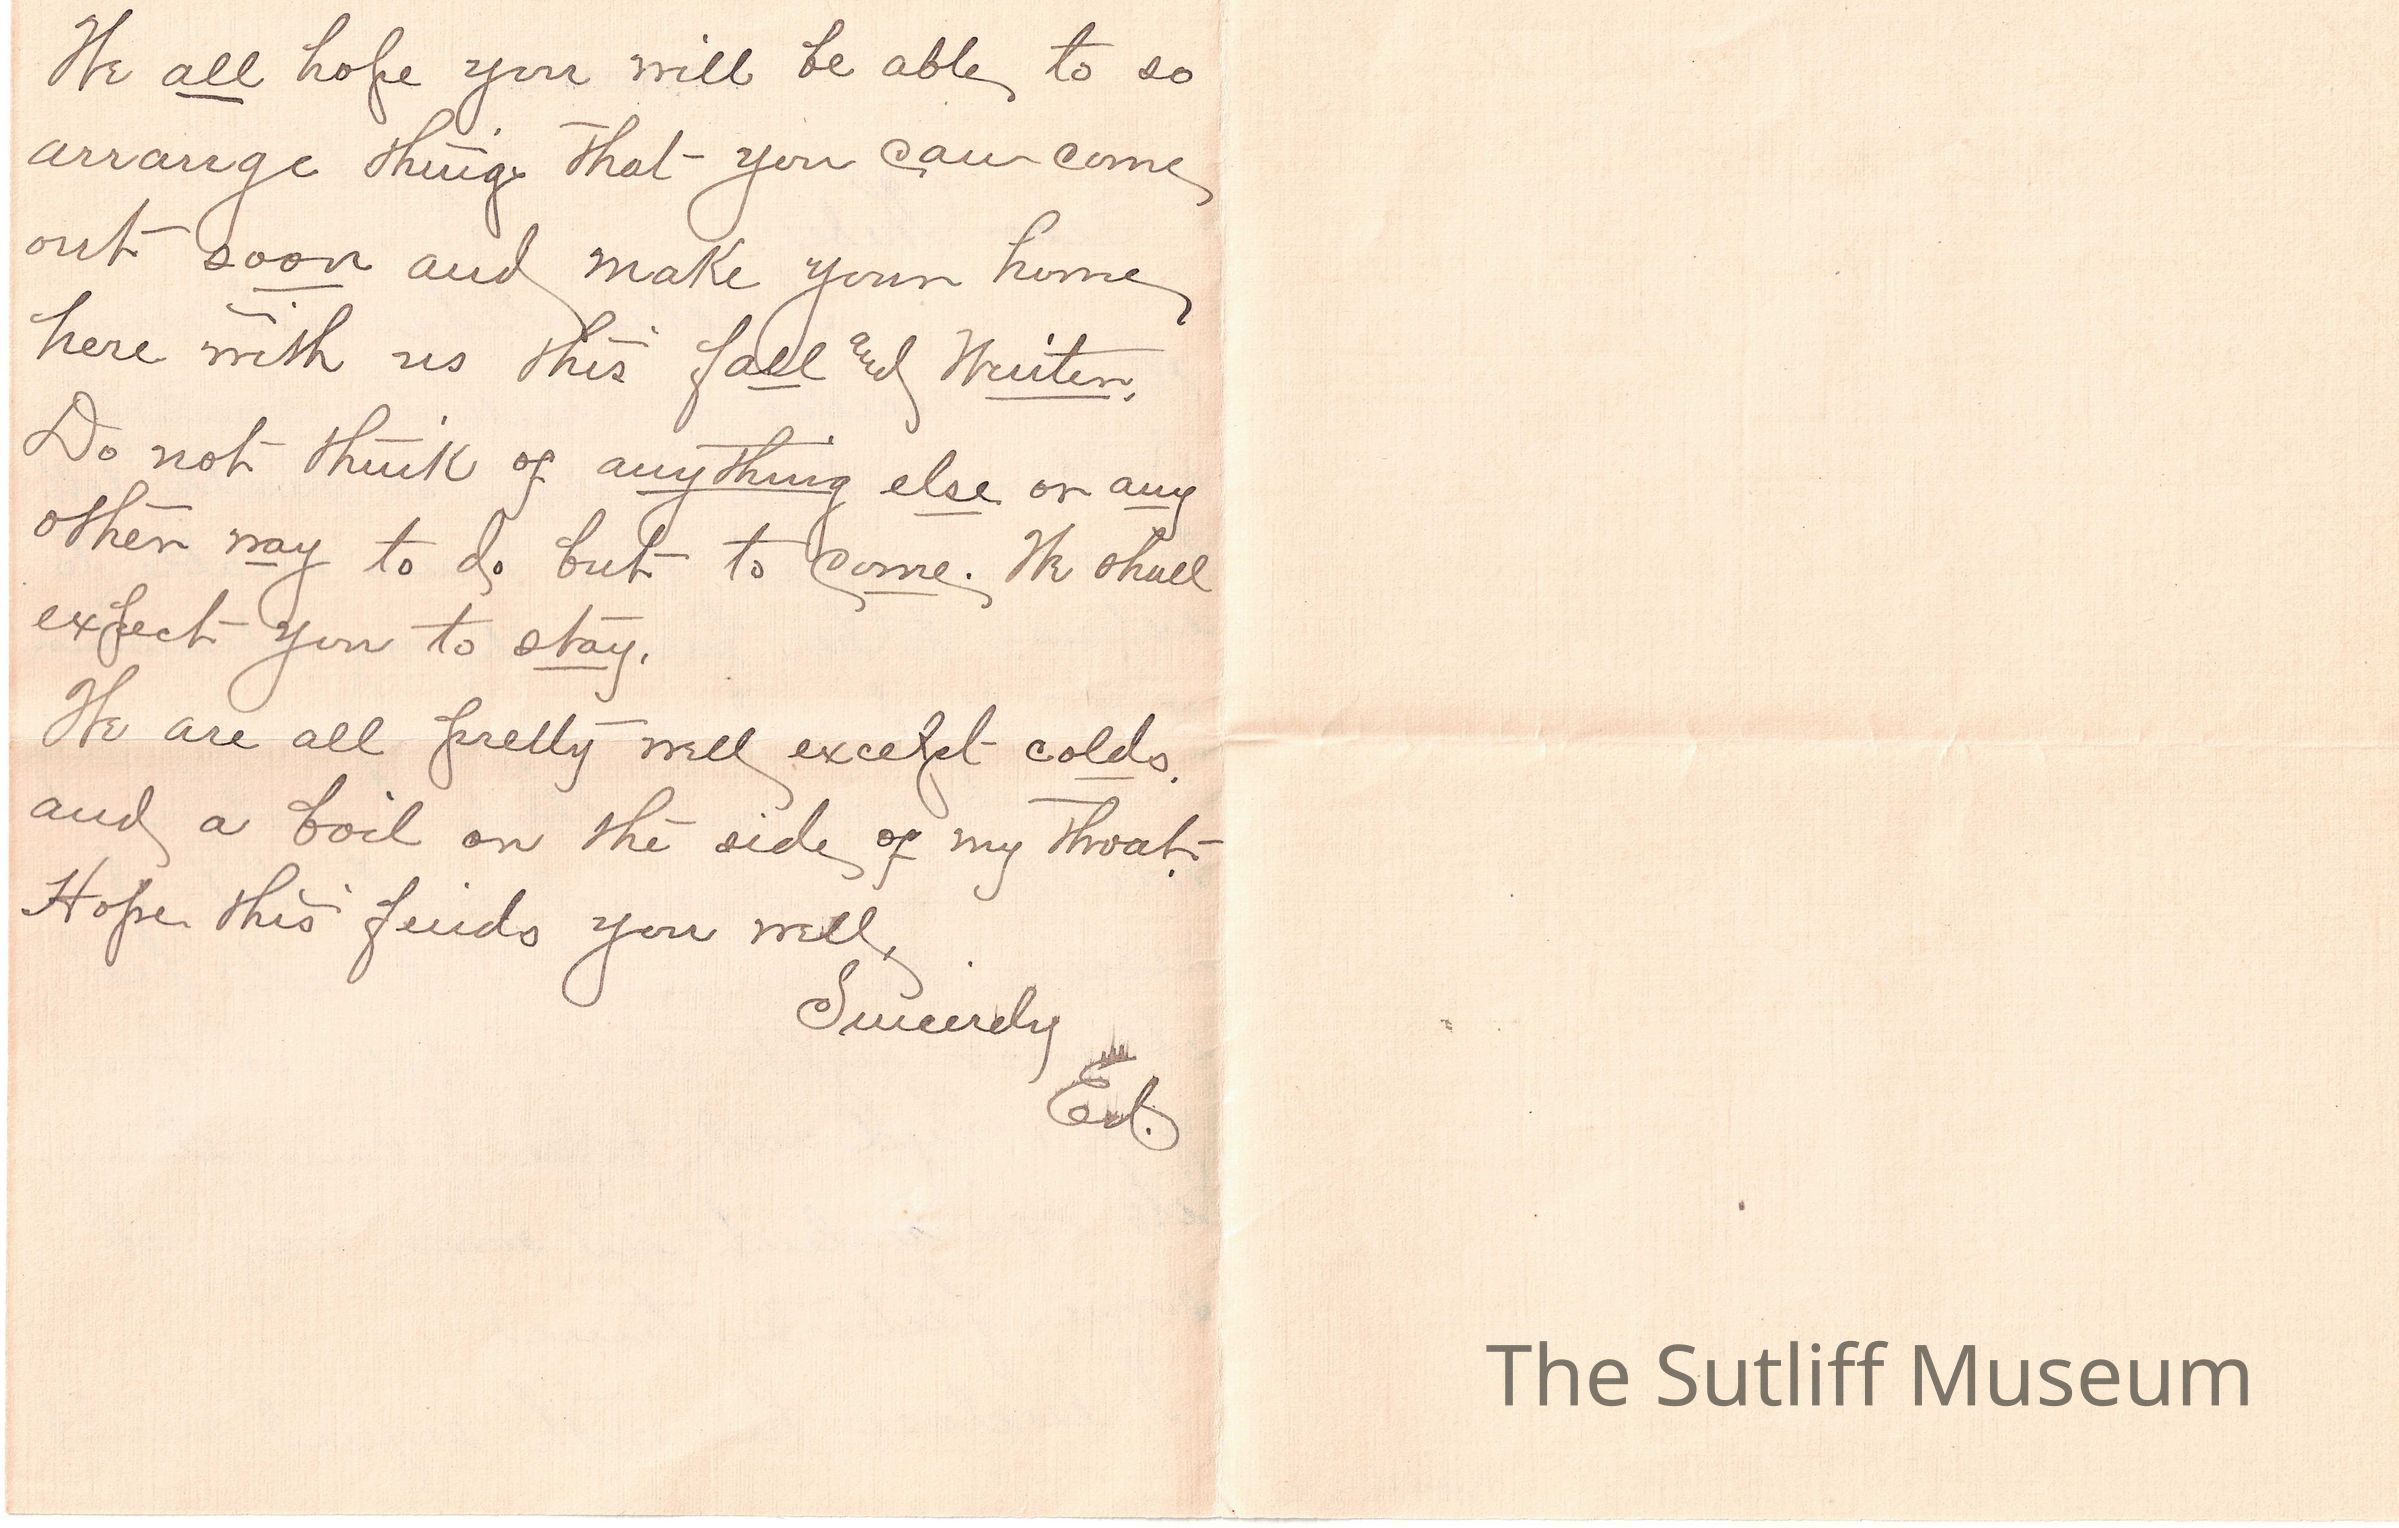 We all hope you will be able to so
arrange things that you can come
out soon and make your home
here with us this fall and Winter.
Do not think of anything else or any
other way to do but to come. We shall
expect you to stay.
We are all pretty well except colds.
and a boil on the side of my throat.
Hope this finds you well.
Sincerely
Ed.
The Sutliff Museum